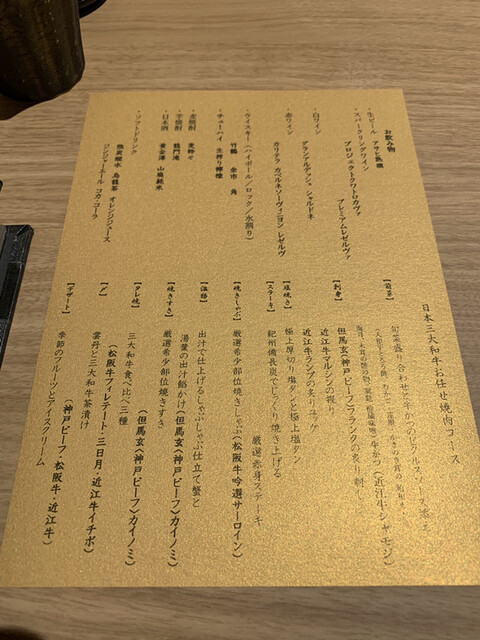 日本三大和牛お任せ焼肉コース
【前菜】
牛かつ（近江牛シャモジ）
【刺身】
但馬玄（神戸ビーフ）フランクの炙り刺し
近江牛マルシンの握り
近江牛ランプの炙りユッケ
【塩焼き】
極上厚切り塩タンと極上塩タン
【ステーキ】
紀州備長炭でじっくり焼き上げる
厳選赤身ステーキ
【焼きしゃぶ】
厳選希少部位焼きしゃぶ（松阪牛吟選サーロイン）
【温物】
出汁で仕上げるしゃぶしゃぶ仕立て蟹と
湯葉の出汁餡かけ（但馬玄（神戸ビーフ）カイノミ）
【焼きすき】
厳選希少部位焼きすき
（但馬玄（神戸ビーフ）カイノミ）
【タレ焼】
三大和牛食べ比べ三種
（松阪牛フィレテート・三日月・近江牛イチボ）
【〆】
雲丹と三大和牛茶漬け
（神戸ビーフ・松阪牛・近江牛）
【デザート】
季節のフルーツとアイスクリーム
お飲み物
・生ビール アサヒ熟撰
・スパークリングワイン
プロジェクトクワトロカヴァ
プレミアムレゼルヴァ
・白ワイン
グランアルデッシュ シャルドネ
・赤ワイン
カリテラ カベルネソーヴィニヨン レゼルヴ
・ウイスキー（ハイボール／ロック／水割り）
竹鶴 余市 角
・チューハイ 生搾り檸檬
・麦焼酎 麦粋々
・芋焼酎 龍門滝
・日本酒 黄金澤 山廃純米
・ソフトドリンク
強炭酸水 烏龍茶 オレンジジュース
ジンジャーエール コカ・コーラ